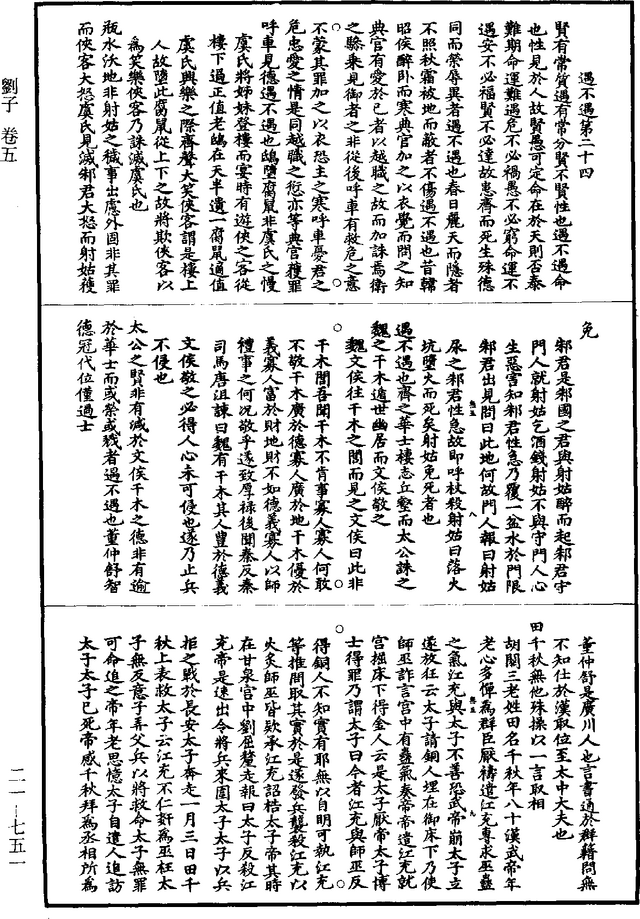 遇不遇第二十四
賢有常質遇有常分賢不賢性也遇不遇命
也性見於人故賢愚可定命在於天則否泰
難期命運難遇危不必禍愚不必窮命運不
遇安不必福賢不必達故患齊而死生殊德
同而榮辱異者遇不遇也春日麗天而隱者
不照秋霜被地而蔽者不傷遇不遇也昔韓
昭侯醉卧而寒典官加之以衣覺而問之知
典官有愛於己者以越職之故而加誅焉衛
之驂乘見御者之非從後呼車有救危之意
不蒙其罪加之以衣恐主之寒呼車憂君之
危忠愛之情是同越職之愆亦等典官獲罪
呼車見德遇不遇也鴟墮腐鼠非虞氏之慢
虞氏將姊妹登樓而宴時有遊俠之客從
樓下過正值老鴟在天半遺一腐鼠適值
虞氏興樂之際齊聲大笑俠客謂是樓上
人故墮此腐鼠從上下之故將欺俠客以
為笑樂俠客乃誅滅虞氏也
瓶水沃地非射姑之穢事出慮外固非其罪
而俠客大怒虞氏見滅邾君大怒而射姑獲
免
邾君是邾國之君與射姑醉而起邾君守
門人就射姑乞酒錢射姑不與守門人心
生惡害知邾君性急乃覆一盆水於門限
邾君出見問曰此地何故門人報曰射姑
尿之邾君性急故即呼杖殺射姑曰落火
坑墮火而死矣射姑免死者也
遇不遇也齊之華士棲志丘壑而太公誅之
魏之干木遁世幽居而文侯敬之
魏文侯往干木之閭而見之文侯曰此非
干木閭吾聞干木不肯事寡人寡人何敢
不敬干木廣於德寡人廣於地干木優於
義寡人富於財地財不如德義寡人以師
禮事之何況敬乎遂致厚禄後聞秦反秦
司馬唐沮諫曰魏有干木其人豈於德義
文侯敬之必得人心未可侵也遂乃止兵
不侵也
太公之賢非有減於文侯干木之德非有逾
於華士而或榮或戮者遇不遇也董仲舒智
德冠代位僅過士
董仲舒是廣川人也言書通於群籍問無
不知仕於漢取位至太中大夫也
田千秋無他殊操以一言取相
胡關三老姓田名千秋年八十漢武帝年
老心多憚為群臣厭禱遣江充專求巫蠱
之氣江充與太子不善恐武帝崩太子立
遂放狂云太子請銅人埋在御床下乃使
師巫詐言宮中有蠱氣奏帝帝遣江充就
宮掘床下得金人云是太子厭帝太子博
士得罪乃謂太子曰今者江充與師巫反
得銅人不知實有耶無以自明可執江充
等推問取其實於是遂發兵襲殺江充以
火炙師巫皆欵承江充詔梏太子帝其時
在甘泉宮中劉屈氂走報曰太子反殺江
充帝是速出令將兵來圍太子太子以兵
拒之戰於長安太子奔走一月三日田千
秋上表救太子云江充不仁姧為巫枉太
子無反意子弄父兵以將救命太子無罪
可命追之帝年老思憶太子自遣人追訪
太子太子已死帝感千秋拜為丞相所為
劉子 卷五
二一—七五一